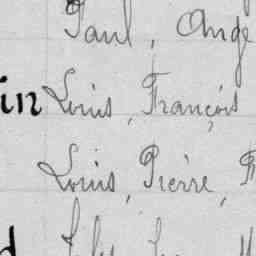 Paul, Ange
in Louis, François
Louis, Pierre,